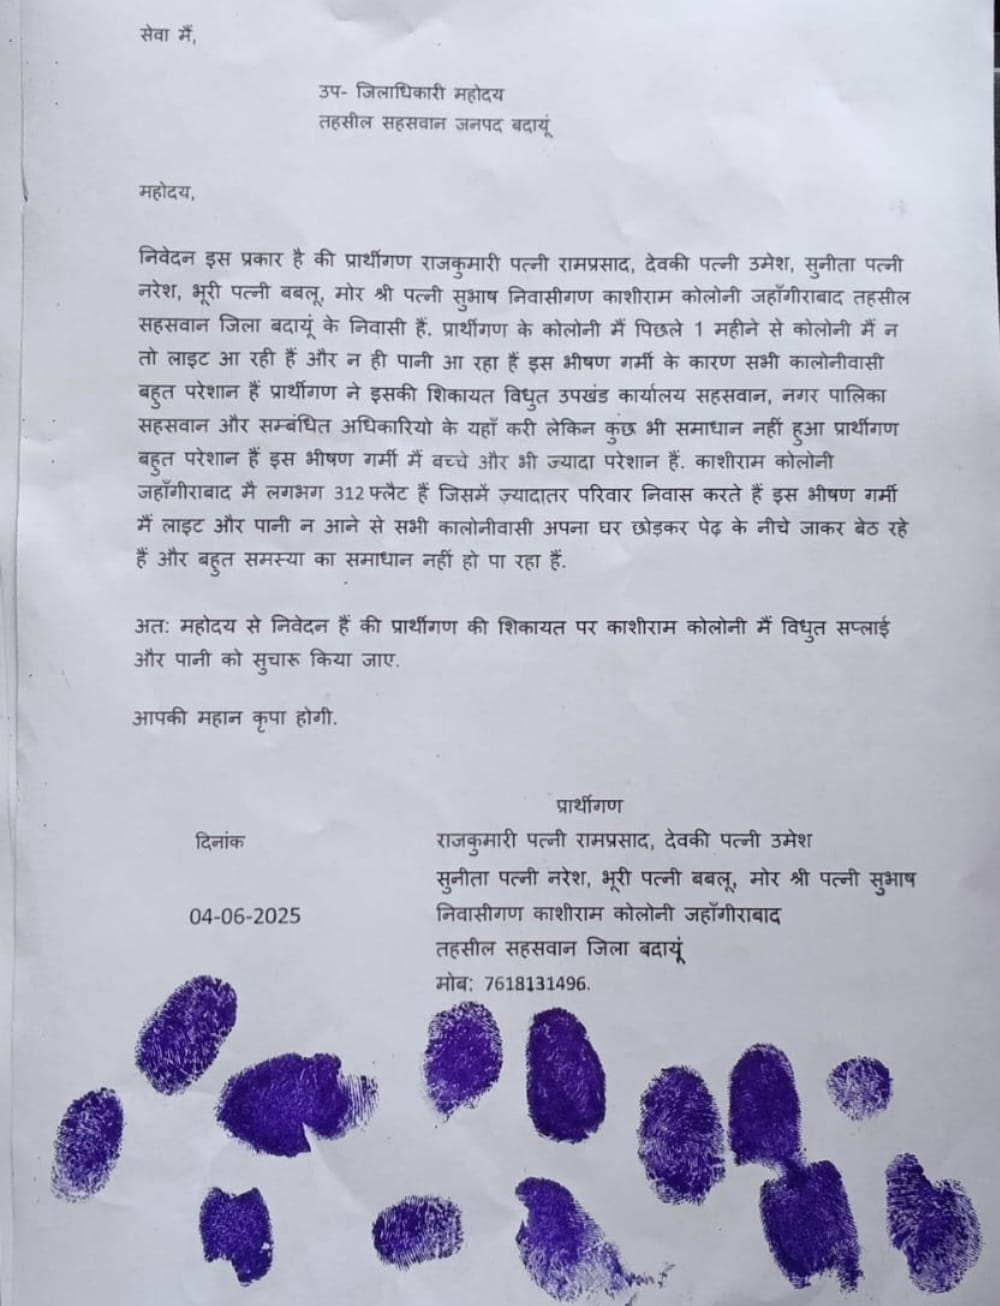 सेवा मैं,
उप- जिलाधिकारी महोदय
तहसील सहसवान जनपद बदायूं
महोदय,
निवेदन इस प्रकार है की प्रार्थीगण राजकुमारी पत्नी रामप्रसाद, देवकी पत्नी उमेश, सुनीता पत्नी
नरेश, भूरी पत्नी बबलू, मोर श्री पत्नी सुभाष निवासीगण काशीराम कोलोनी जहाँगीराबाद तहसील
सहसवान जिला बदायूं के निवासी हैं. प्रार्थीगण के कोलोनी मैं पिछले 1 महीने से कोलोनी मैं न
तो लाइट आ रही हैं और न ही पानी आ रहा हैं इस भीषण गर्मी के कारण सभी कालोनीवासी
बहुत परेशान हैं प्रार्थीगण ने इसकी शिकायत विधुत उपखंड कार्यालय सहसवान, नगर पालिका
सहसवान और सम्बंधित अधिकारियो के यहाँ करी लेकिन कुछ भी समाधान नहीं हुआ प्रार्थीगण
बहुत परेशान हैं इस भीषण गर्मी मैं बच्चे और भी ज्यादा परेशान हैं. काशीराम कोलोनी
जहाँगीराबाद मै लगभग 312 फ्लैट हैं जिसमें ज़्यादातर परिवार निवास करते हैं इस भीषण गर्मी
मैं लाइट और पानी न आने से सभी कालोनीवासी अपना घर छोड़कर पेढ़ के नीचे जाकर बेठ रहे
हैं और बहुत समस्या का समाधान नहीं हो पा रहा हैं.
अत: महोदय से निवेदन हैं की प्रार्थीगण की शिकायत पर काशीराम कोलोनी मैं विधुत सप्लाई
और पानी को सुचारू किया जाए.
आपकी महान कृपा होगी.
प्रार्थीगण
दिनांक
राजकुमारी पत्नी रामप्रसाद, देवकी पत्नी उमेश
सुनीता पत्नी नरेश, भूरी पत्नी बबलू, मोर श्री पत्नी सुभाष
04-06-2025
निवासीगण काशीराम कोलोनी जहाँगीराबाद
तहसील सहसवान जिला बदायूं
मोब: 7618131496.